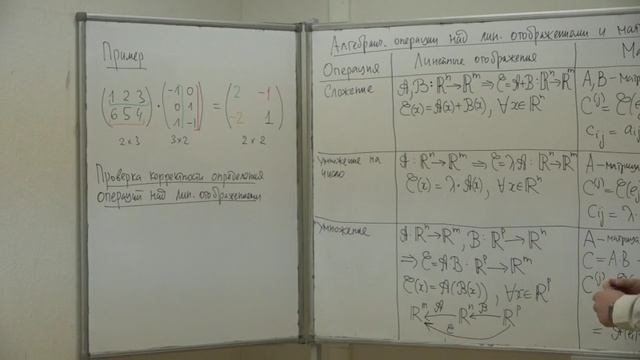 Пример
(1 2 3
6 5 4) · (-1 0
0 1
1 -1) = (2 -1
-2 1)
2×3 3×2 2×2
Проверка корректности определения
операций над лин. отображениями
Алгебраич. операции над лин. отображениями и
Операция Линейные отображения
Сложение
A, B: ℝⁿ→ℝᵐ ⇒ C=A+B: ℝⁿ→ℝᵐ
C(x)=A(x)+B(x), ∀x∈ℝⁿ
A, B – матри
умножение на
число
A: ℝⁿ→ℝᵐ ⇒ C=λA: ℝⁿ→ℝᵐ
C(x)=λ·A(x), ∀x∈ℝⁿ
A – матриц
Cij = λ·
Умножение
A: ℝⁿ→ℝᵐ, B: ℝᵖ→ℝⁿ
⇒ C=AB: ℝᵖ→ℝᵐ
C(x)=A(B(x)), ∀x∈ℝᵖ
ℝᵐ ←A ℝⁿ ←B ℝᵖ
C
A – матриц
C = A·B